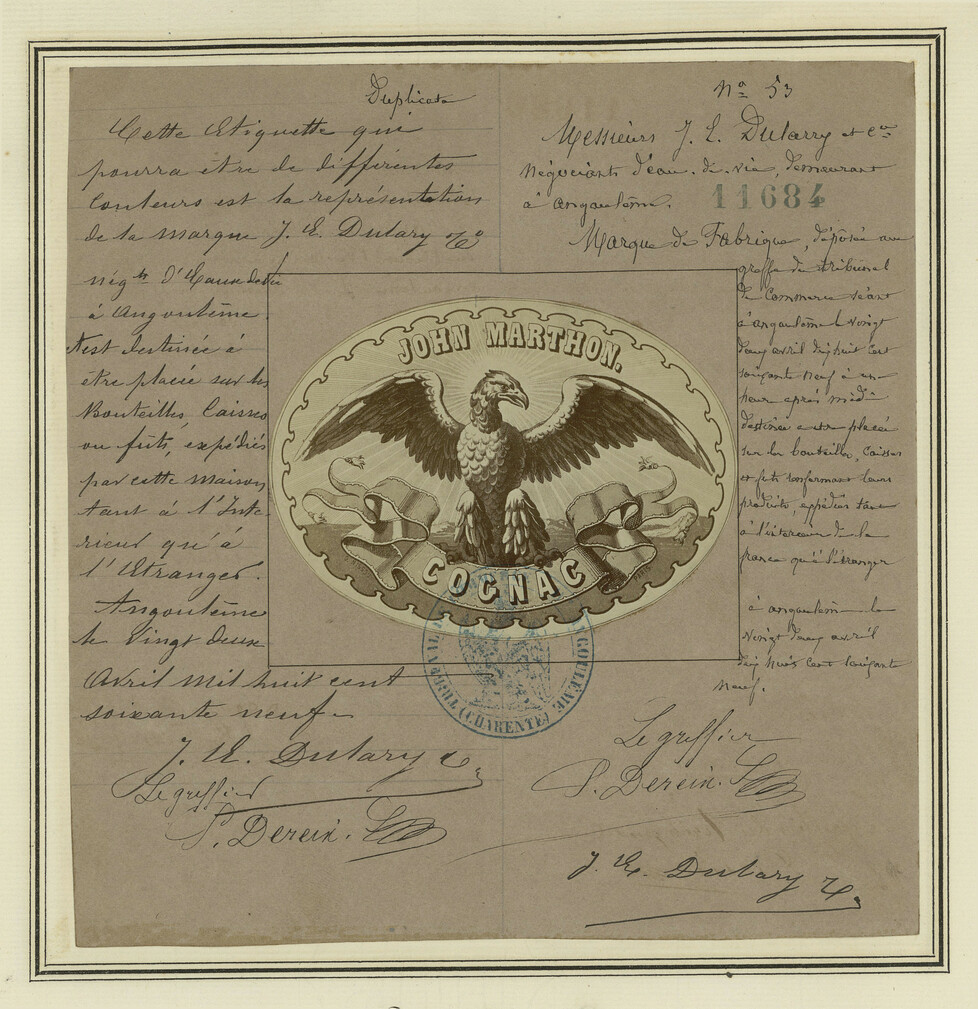 Duplicata
Cette Etiquette qui
pourra être de différentes
Couleurs est la représentation
de la marque J. E. Dulary & Cº
négts d'Eaux de Vie
à Angoulême.
Est destinée à
être placée sur les
Bouteilles, Caisses
ou fûts, expédiés
par cette maison
tant à l'Inté-
rieur qu'à
l'Etranger.
Angoulême
le Vingt deux
Avril mil huit cent
soixante neuf
J. E. Dulary &
Le greffier
P. Dereix.
Nº 53
Messieurs J. E. Dularry et Cie
négociants d'eau. de. vie, demeurant
à angoulême.
11684
Marque de Fabrique, déposée au
greffe du tribunal
de Commerce séant
à angoulême le vingt
deux avril dix huit cent
soixante neuf à une
heure après midi
destinée a etre placée
sur les bouteilles, Caisses
et fûts renfermant leurs
produits, expédiés tant
à l'intérieur de la
france qu'à l'étranger
à angoulême le
vingt deux avril
dix huit cent soixante
neuf.
Le greffier
P. Dereix.
J. E. Dulary &
JOHN MARTHON.
COGNAC
(CHARENTE)